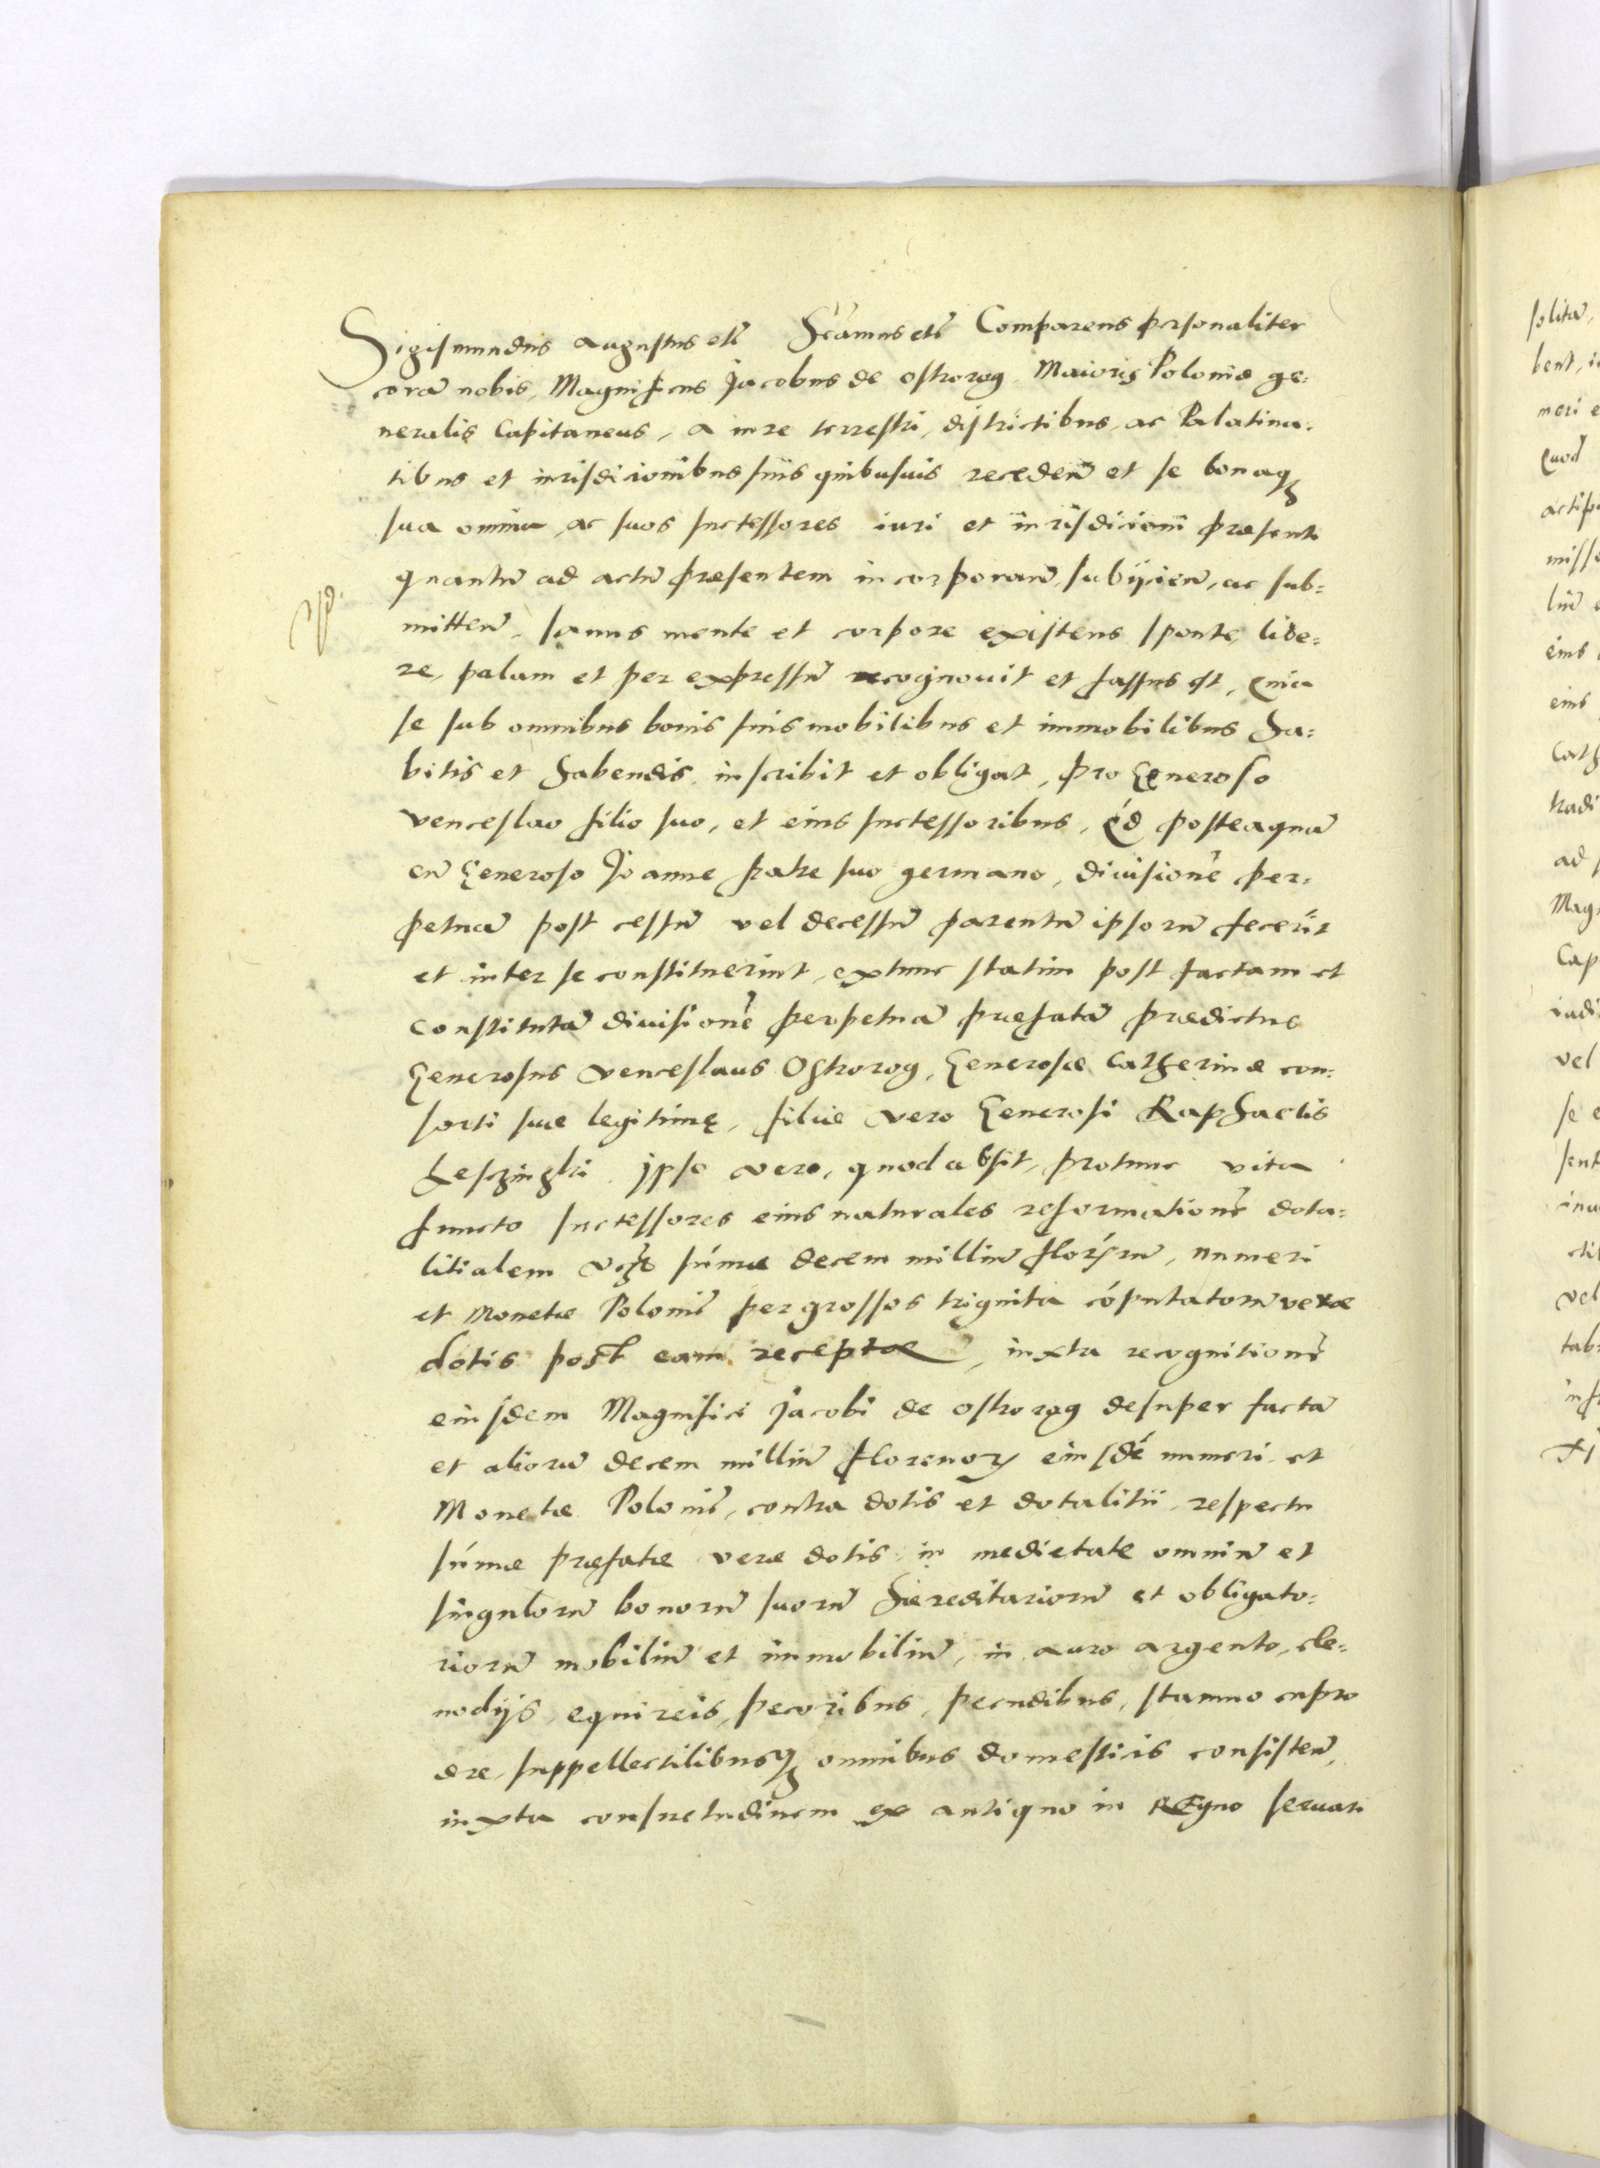 Sigismundus Augustus etc̃ Scĩmus etc̃ Comparens personaliter
corã nobis, Magnificus Jacobus de Ostrorog Maioris Poloniæ ge:
neralis Capitaneus, a iure terrestri, districtibus, ac Palatina:
tibus et iurisdicionibus suis quibusuis receden̄ et se bonaq3
sua omnia ac suos successores iuri et iurisdicioni præsenti
quantũ ad actũ præsentem incorporan̄, subijcien̄, ac sub:
mitten̄, sanus mente et corpore existens sponte, libe:
re, palam et per expressũ recognouit et fassus est, Quia
se sub omnibus bonis suis mobilibus et immobilibus ha:
bitis et habendis inscribit et obligat, pro Generoso
Venceslao filio suo, et eius successoribus, Qd posteaquã
cũ Generoso Joanne fratre suo germano, diuisionẽ per:
petuã post cessũ vel decessũ parentũ ipsorũ fecerĩt
et inter se constituerint, extunc statim post factam et
constitutã diuisionẽ perpetuã præfatã prædictus
Generosus Venceslaus Ostrorog, Generosæ Catherinæ con:
sorti suæ legitimę, filiæ vero Generosi Raphaelis
Leszczinski ipso vero, quod absit, protunc vita
functo successores eius naturales reformationẽ dota:
litialem sũmæ decem milliũ florẽorũ, numeri
et Monetæ Polonic̃ per grossos triginta cõputatorũ veræ
dotis post eam receptæ, iuxta recognitionẽ
eiusdem Magnifici Jacobi de Ostrorog desuper factã
et aliorũ decem milliũ florenorũ eiusdẽ numeri et
Monetæ Polonic̃, contra dotis et dotalitii, respectu
sũmæ præfatæ veræ dotis in medietate omniũ et
singulorũ bonorũ suorũ hæreditariorũ et obligato:
riorũ mobiliũ et immobiliũ, in auro argento, cle:
nodijs, equireis, pecoribus, pecudibus, stamno cupro
ære, suppellectilibusq3 omnibus domesticis consisten̄,
iuxta consuetudinem ex antiquo in Regno seruari